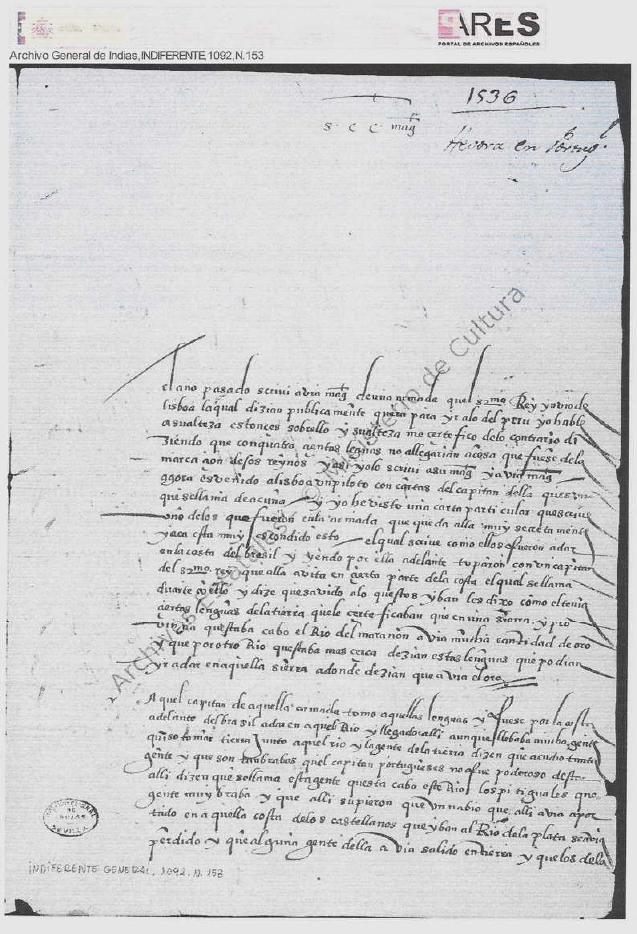 ARES
PORTAL DE ARCHIVOS ESPAÑOLES
Archivo General de Indias,INDIFERENTE,1092,N.153
1536
S C C mag
Hevora en portugl
Archivos Estatales, Ministerio de Cultura
el año pasado screvi a vra magt de una armada quel sermo Rey
lisboa la qual dizian publicamente quera para yr alo del peru y o hable
a su alteza estonces sobrello y su alteza me certefico delo contrario di
ziendo que con quatro cientas leguas no allegarian a cosa que fuese de la
marcacion de sos reynos y asi yo lo screvi a su magt y a vra magt
aggora es venido a lisboa un piloto con cartas del capitan della
que se llama de acuña y yo he visto una carta particular que scrive
uno delos que fueron en la armada que queda alla muy secretamente
y aca esta muy escondido esto el qual scrive como ellos fueron a dar
en la costa del brasil y yendo por ella adelante toparon con un capitan
del sermo rey que alla avita en cierta parte de la costa el qual se llama
duarte cuello y dize que savido alo questos yban les dixo como el tenia
ciertas lenguas dela tierra quele certeficaban que en una sierra y pro
vincia questaba cabo el Rio del marañon avia mucha cantidad de oro
y que por otro Rio questaba mas cerca dezian estas lenguas que podian
yr a dar en aquella sierra a donde dezian que avia el oro
Aquel capitan de aquella armada tomo aquellas lenguas y fuese por la costa
adelante del brasil a dar en aquel Rio y llegado alli aunque llebaba mucha gente
quiso tomar tierra junto aquel rio y la gente de la tierra dizen que acudio tanta
gente y que son tan brabos quel capitan portugueses no fue poderoso
alli dizen que se llama esta gente questa cabo este Rio los pitiguales que
gente muy braba y que alli supieron que un nabio que alli avia apor
tado en aquella costa delos castellanos que yban al Rio dela plata se avia
perdido y que alguna gente della avia salido en tierra y que los dela
ARCHIVO GENERAL
DE INDIAS
SEVILLA
INDIFERENTE GENERAL, 1092, N. 153